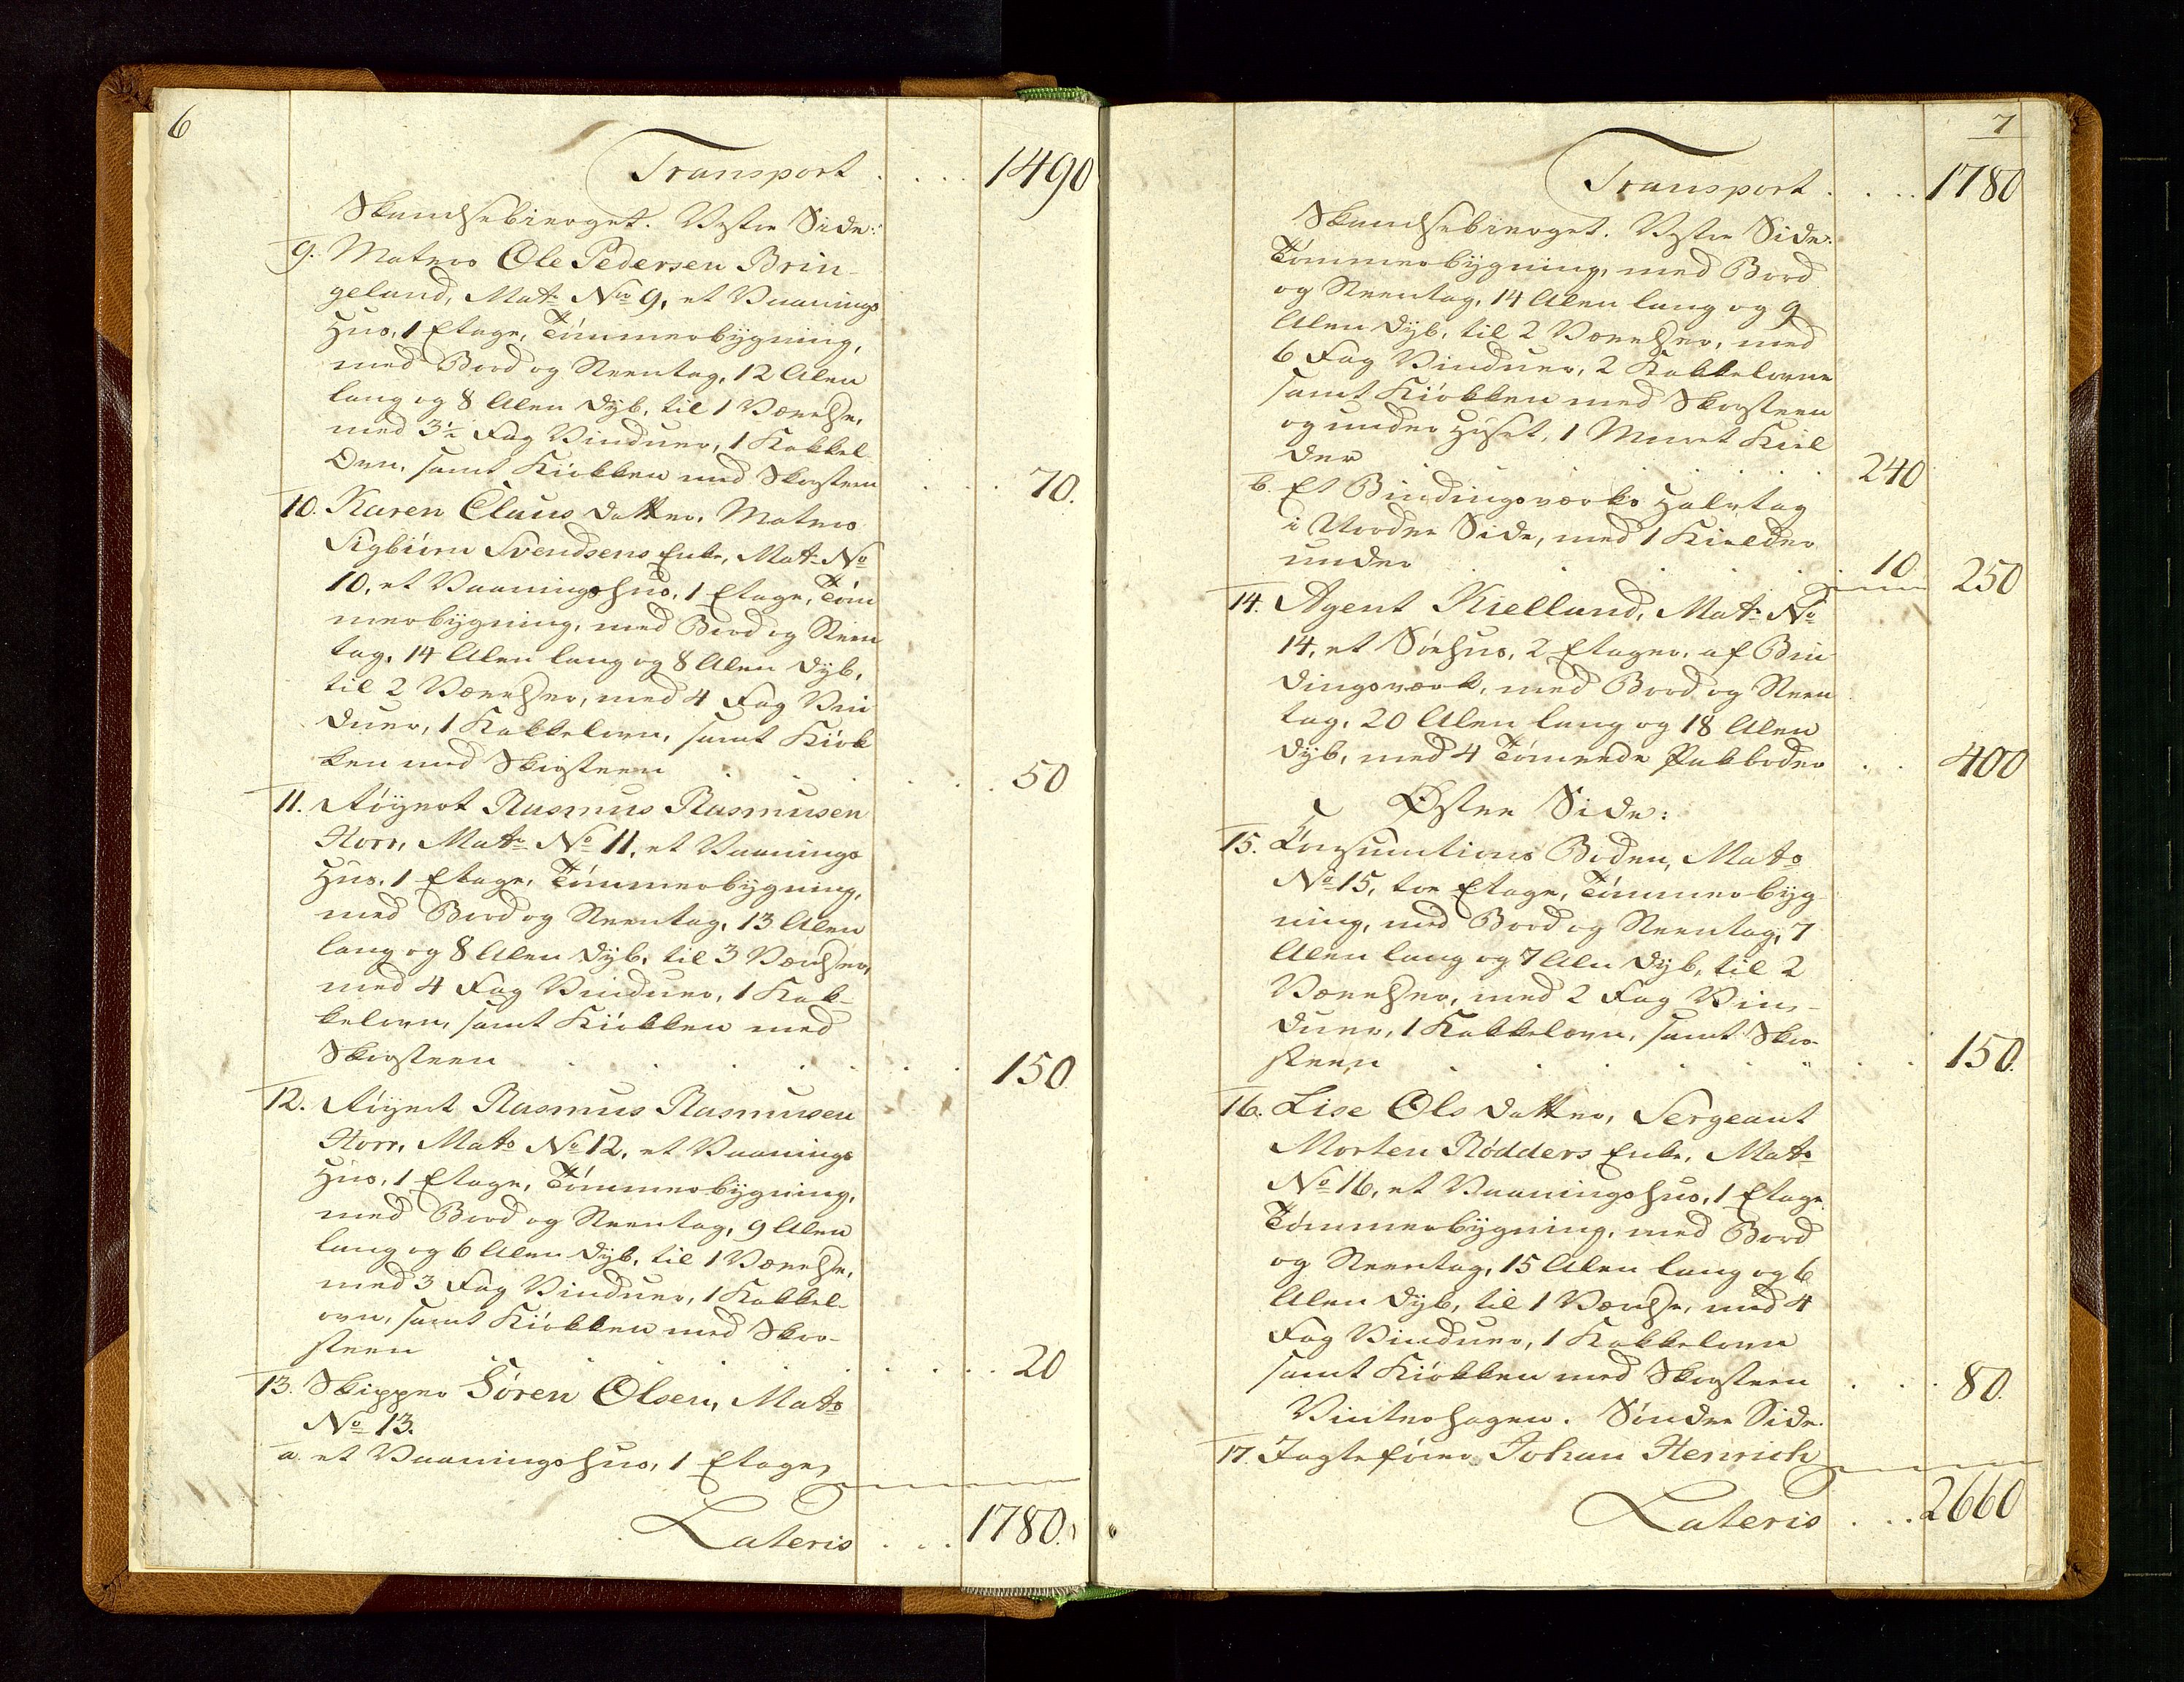 6
Transport . . . . 1490
Skandsebierget. Vestre Side:
9. Matros Ole Pedersen Brin-
geland, Mat: No 9, et Vaanings
Huus, 1 Etage, Tømmerbygning,
med Bord og Steentag, 12 Alen
lang og 8 Alen dyb, til 1 Værelse,
med 3½ Fag Vinduer, 1 Kakkel
Ovn, samt Kiøkken med Skorsteen . . . 70.
10. Karen Claus datter, Matros
Sigbiørn Svendsens Enke, Mat: No
10, et Vaaningshuus, 1 Etage, Tøm
merbygning, med Bord og Steen
tag, 14 Alen lang og 8 Alen dyb,
til 2 Værelser, med 4 Fag Vin
duer, 1 Kakkelovn, samt Kiøk
ken med Skorsteen . . . . . 50
11. Røgert Rasmus Rasmusen
Horr, Mat: No 11, et Vaanings
Huus, 1 Etage, Tømmerbygning,
med Bord og Steentag, 13 Alen
lang og 8 Alen dyb, til 3 Værelser,
med 4 Fag Vinduer, 1 Kak-
kelovn, samt Kiøkken med
Skorsteen . . . . . . . . 150
12. Røgert Rasmus Rasmusen
Horr, Mat: No 12, et Vaanings
Huus, 1 Etage, Tømmerbygning,
med Bord og Steentag, 9 Alen
lang og 6 Alen dyb, til 1 Værelse,
med 3 Fag Vinduer, 1 Kakkel-
ovn, samt Kiøkken med Skor-
steen . . . . . . . . 20
13. Skipper Søren Olsen, Mat:
No 13.
a. et Vaaningshuus, 1 Etage,
Lateris . . . 1780.
7
Transport . . . . 1780
Skandsebierget. Vestre Side:
Tømmerbygning, med Bord
og Steentag, 14 Alen lang og 9
Alen dyb, til 2 Værelser, med
6 Fag Vinduer, 2 Kakkelovne
samt Kiøkken med Skorsteen
og under Huset, 1 Muret Kiel
der . . . . . . . 240
b. Et Bindingsværks Halvtag
i Nordre Side, med 1 Kielder
under . . . . . 10 250
14. Agent Kielland, Mat: No
14, et Søehuus, 2 Etager, af Bin
dingsværk, med Bord og Steen
tag, 20 Alen lang og 18 Alen
dyb, med 4 Tømrede Pakboder . . 400
Østre Side:
15. Consumtions Boden, Mat:
No 15, toe Etage, Tømmerbyg
ning, med Bord og Steentag, 7
Alen lang og 7 Alen dyb, til 2
Værelser, med 2 Fag Vin-
duer, 1 Kakkelovn, samt Skor-
steen . . . . . . . 150.
16. Lise Ols datter, Sergeant
Morten Rødders Enke, Mat:
No 16, et Vaaningshuus, 1 Etage,
Tømmerbygning, med Bord
og Steentag, 15 Alen lang og 6
Alen dyb, til 1 Værelse, med 4
Fag Vinduer, 1 Kakkelovn
samt Kiøkken med Skorsteen . . . 80.
Vinterhagen. Søndre Side.
17. Jagtefører Johan Henrich
Lateris . . . 2660